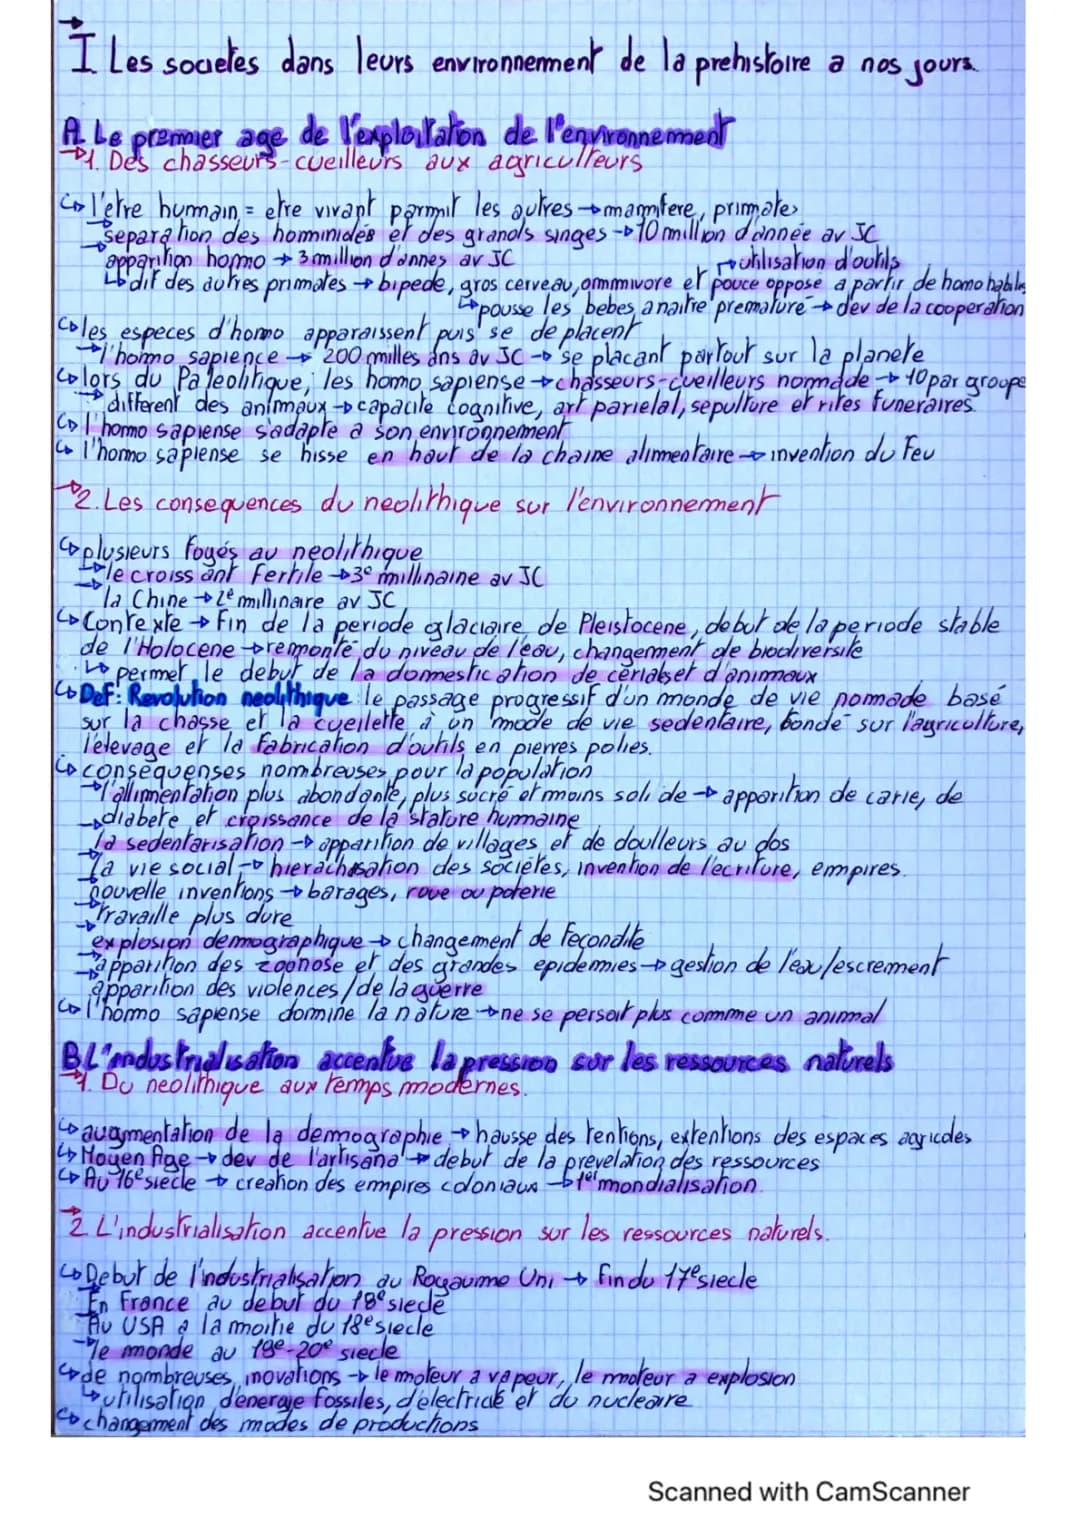 I Les societes dans leurs environnement de la prehistoire a nos jours.
A. Le premier age de l'exploitation de l'environnement
1. Des chasseurs-cueilleurs aux agriculteurs
l'etre humain = etre vivant parmit les autres → mammifere, primates
separation des hominidés et des grands singes → 10 million d'année av JC
apparition homo → 3 million d'annes av JC
→ utilisation d'outils
dif des autres primates → bipede, gros cerveau, ommnivore et pouce oppose a partir de homo habilis
pousse les bebes a naitre premature → dev de la cooperation
les especes d'homo apparaissent puis se deplacent
l'homo sapience → 200 milles ans av JC → se placant partout sur la planete
lors du Paleolitique, les homo sapiense → chasseurs-cueilleurs nommade → 10 par groupe
different des animaux → capacite cognitive, art parietal, sepulture et rites funeraires.
l'homo sapiense s'adapte a son environnement
l'homo sapiense se hisse en haut de la chaine alimmentaire → invention du feu
2. Les consequences du neolithique sur l'environnement
plusieurs foyés au neolithique
le croissant fertile → 3e millinaine av JC
la Chine → 2e millinaire av JC
Contexte → fin de la periode glaciaire de Pleistocene, debut de la periode stable
de l'Holocene → remonté du niveau de l'eau, changement de biodiversite
permet le debut de la domestication de cerialset d'animaux
Def: Revolution neolithique: le passage progressif d'un monde de vie nomade basé
sur la chasse et la cueillette à un mode de vie sedentaire, fonde sur l'agriculture,
l'elevage et la fabrication d'outils en pierres polies.
consequenses nombreuses pour la population
l'allimentation plus abondante, plus sucré et moins solide → apparition de carie, de
diabete et croissance de la stature humaine
la sedentarisation → apparition de villages et de doulleurs au dos
la vie social → hierachisation des societes, invention de l'ecriture, empires.
nouvelle inventions → barages, roue ou poterie
travaille plus dure
explosion demographique → changement de fecondite
apparition des zoonose et des grandes epidemies → gestion de l'eau/escrement
apparition des violences / de la guerre
l'homo sapiense domine la nature → ne se persoit plus comme un animal
B L'industrialisation accentue la pression sur les ressources naturels
1. Du neolithique aux temps modernes.
augmentation de la demographie → hausse des tentions, extentions des espaces agricoles
Moyen Age → dev de l'artisanat → debut de la prevelation des ressources
Au 16e siecle → creation des empires coloniaux → 1er mondialisation.
2 L'industrialisation accentue la pression sur les ressources naturels.
Debut de l'industrialisation au Royaume Uni → fin du 17e siecle
En France au debut du 18e siecle
Au USA a la moitie du 18e siecle
le monde au 19e-20e siecle
de nombreuses inovations → le moteur a vapeur, le moteur a explosion
utilisation d'energie fossiles, d'electricite et du nucleaire
changement des modes de productions
Scanned with CamScanner